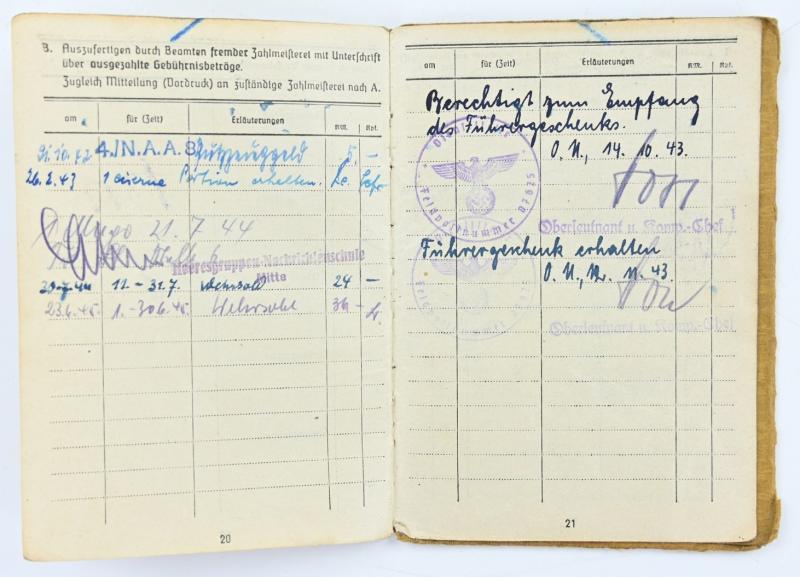 B. Auszufertigen durch Beamten fremder Zahlmeisterei mit Unterschrift
über ausgezahlte Gebührnisbeträge.
Zugleich Mitteilung (Vordruck) an zuständige Zahlmeisterei nach A.
am für (Zeit) Erläuterungen RM. Rpf.
21.10.42 4./N.A.A. 8 Putzzeuggeld 5. –
26.2.43 1 eiserne Portion erhalten.
21.7.44
Heeresgruppen-Nachrichtenschule
Mitte
20.7.44 11.–31.7. Wehrsold 24 –
23.6.45. 1.–30.6.45. Wehrsold 36 –
20
am für (Zeit) Erläuterungen RM. Rpf.
Berechtigt zum Empfang
des Führergeschenks.
O.U., 14.10.43.
Dienststelle
Feldpostnummer 07025
Oberleutnant u. Komp.-Chef
Führergeschenk erhalten
O.U., 11.43.
Oberleutnant u. Komp.-Chef
21